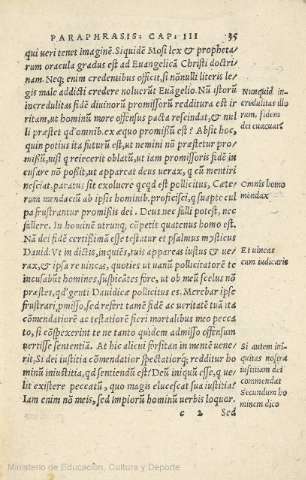 PARAPHRASIS: CAP: III 35
qui ueri tenet imaginē. Siquidē Mosi lex & prophetarum
oracula gradus est ad Euangelicā Christi doctrinam.
Neq; enim credentibus officit, si nōnulli literis legis
male addicti credere noluerūt Euāgelio. Nū istorū
incredulitas fidē diuinorū promissorū redditura est irritam,
ut hominū more offensus pacta rescindat, & nulli
præstet qd omnib. ex æquo promissū est? Absit hoc,
quin potius ita futurū est, ut nemini nō præstetur promissū,
nisi q reiecerit oblatū, ut iam promissoris fidē incusare
nō possit, ut appareat deus uerax, q cū mentiri
nesciat. paratus sit exoluere qcqd est pollicitus, Cæterum
mendaciū ab ipsis hominib. proficisci, q suapte culpa
frustrantur promissis dei. Deus nec falli potest, nec
fallere. In hominē utrunq; cōpetit quatenus homo est.
Nā dei fidē certissimā esse testatur et psalmus mysticus
Dauid. Vt in dictis, inquiēs, tuis appareas iustus & uerax,
& ipsa re uincas, quoties ut uanū pollicitatorē te
incusabūt homines, suspicātes fore, ut ob meū scelus nō
præstes, qd genti Dauidicæ pollicitus es. Merebar ipse
frustrari promisso, sed refert tamē fidē ac ueritatē tuā ita
cōmendatiorē ac testatiorē fieri mortalibus meo peccato,
si cōspexerint te ne tanto quidem admisso offensum
uertisse sententiā. At hic alicui forsitan in mentē uenerit,
Si dei iustitia cōmendatior spectatiorq; redditur hominū
iniustitia, qd sentiendū est? Deū iniquū esse, q uelit
existere peccatū, quo magis elucescat sua iustitia?
Iam enim nō meis, sed impiorū hominū uerbis loquor.
c 2 Sed
Nunquid incredulitas
illorum,
fidem
dei euacuat?
Omnis homo
mendax
Et uincas
cum iudicaris
Si autem iniquitas
nostra
iustitiam dei
commendat
Secundum hominem
dico
Ministerio de Educación, Cultura y Deporte